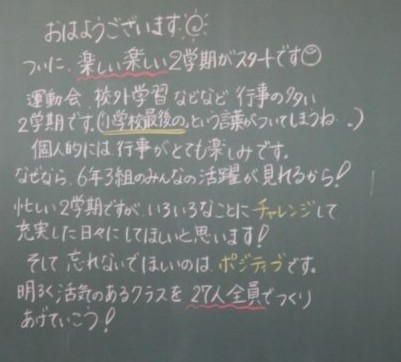 おはようございます
ついに、楽しい楽しい2学期がスタートです
運動会、校外学習などなど行事の多い
2学期です。(小学校最後の、という言葉がついてしまうね…)
個人的には行事がとても楽しみです。
なぜなら、6年3組のみんなの活躍が見れるから!
忙しい2学期ですが、いろいろなことにチャレンジして
充実した日々にしてほしいと思います!
そして忘れないでほしいのは、ポジティブです。
明るく活気のあるクラスを27人全員でつくり
あげていこう!